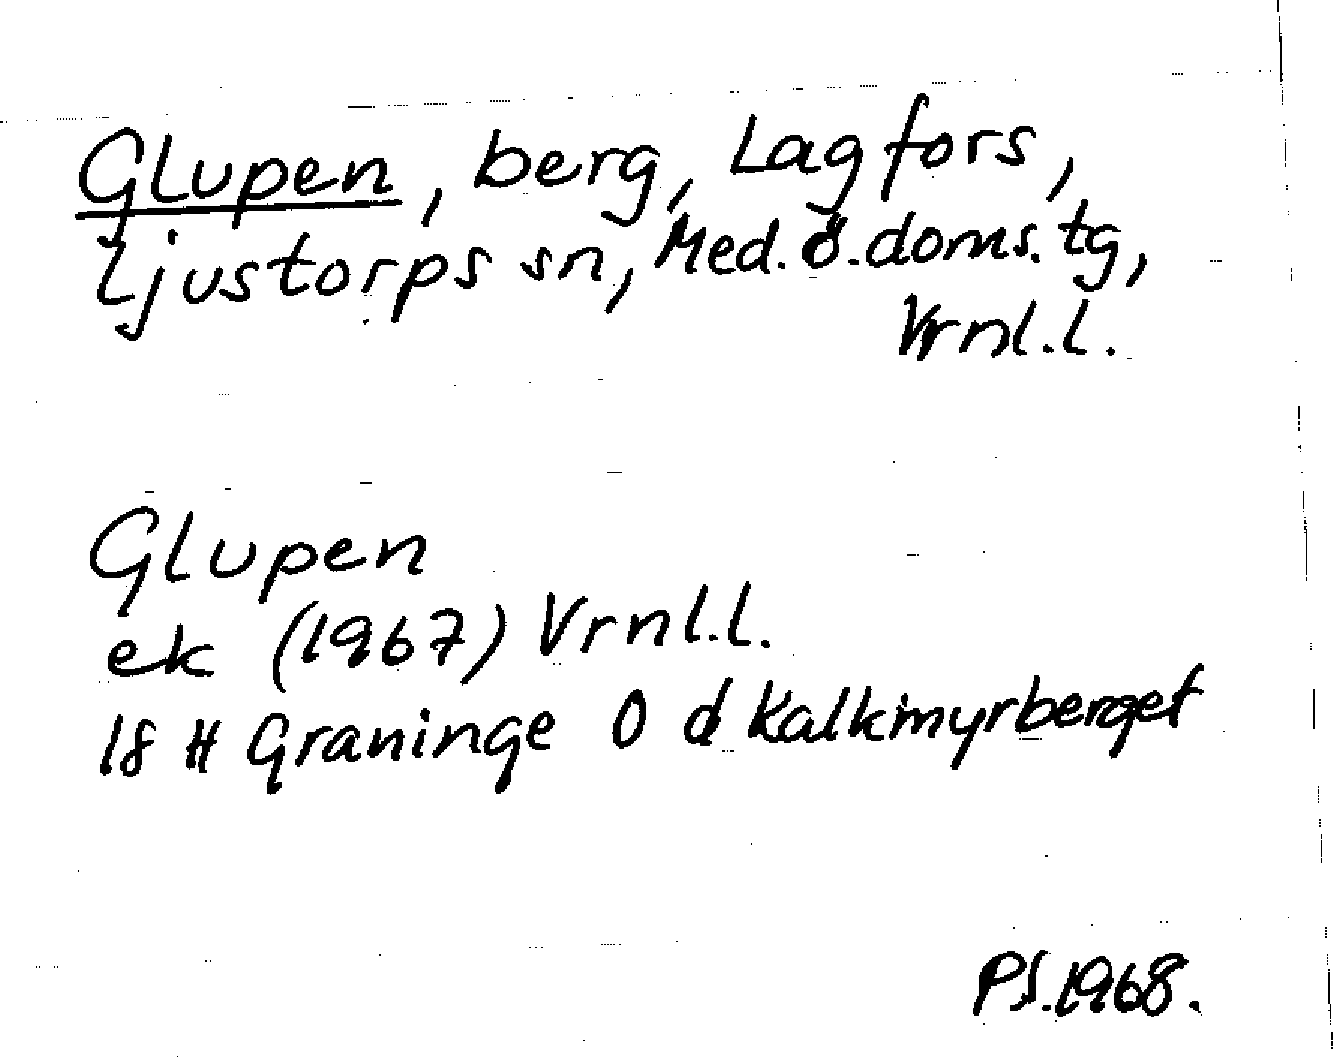 Glupen, berg, Lagfors,
Ljustorps sn, Med. ö. doms. tg,
Vrnl.l.
Glupen
ek (1967) Vrnl.l.
18 H Graninge O d Kalkmyrberget
PS.1968.